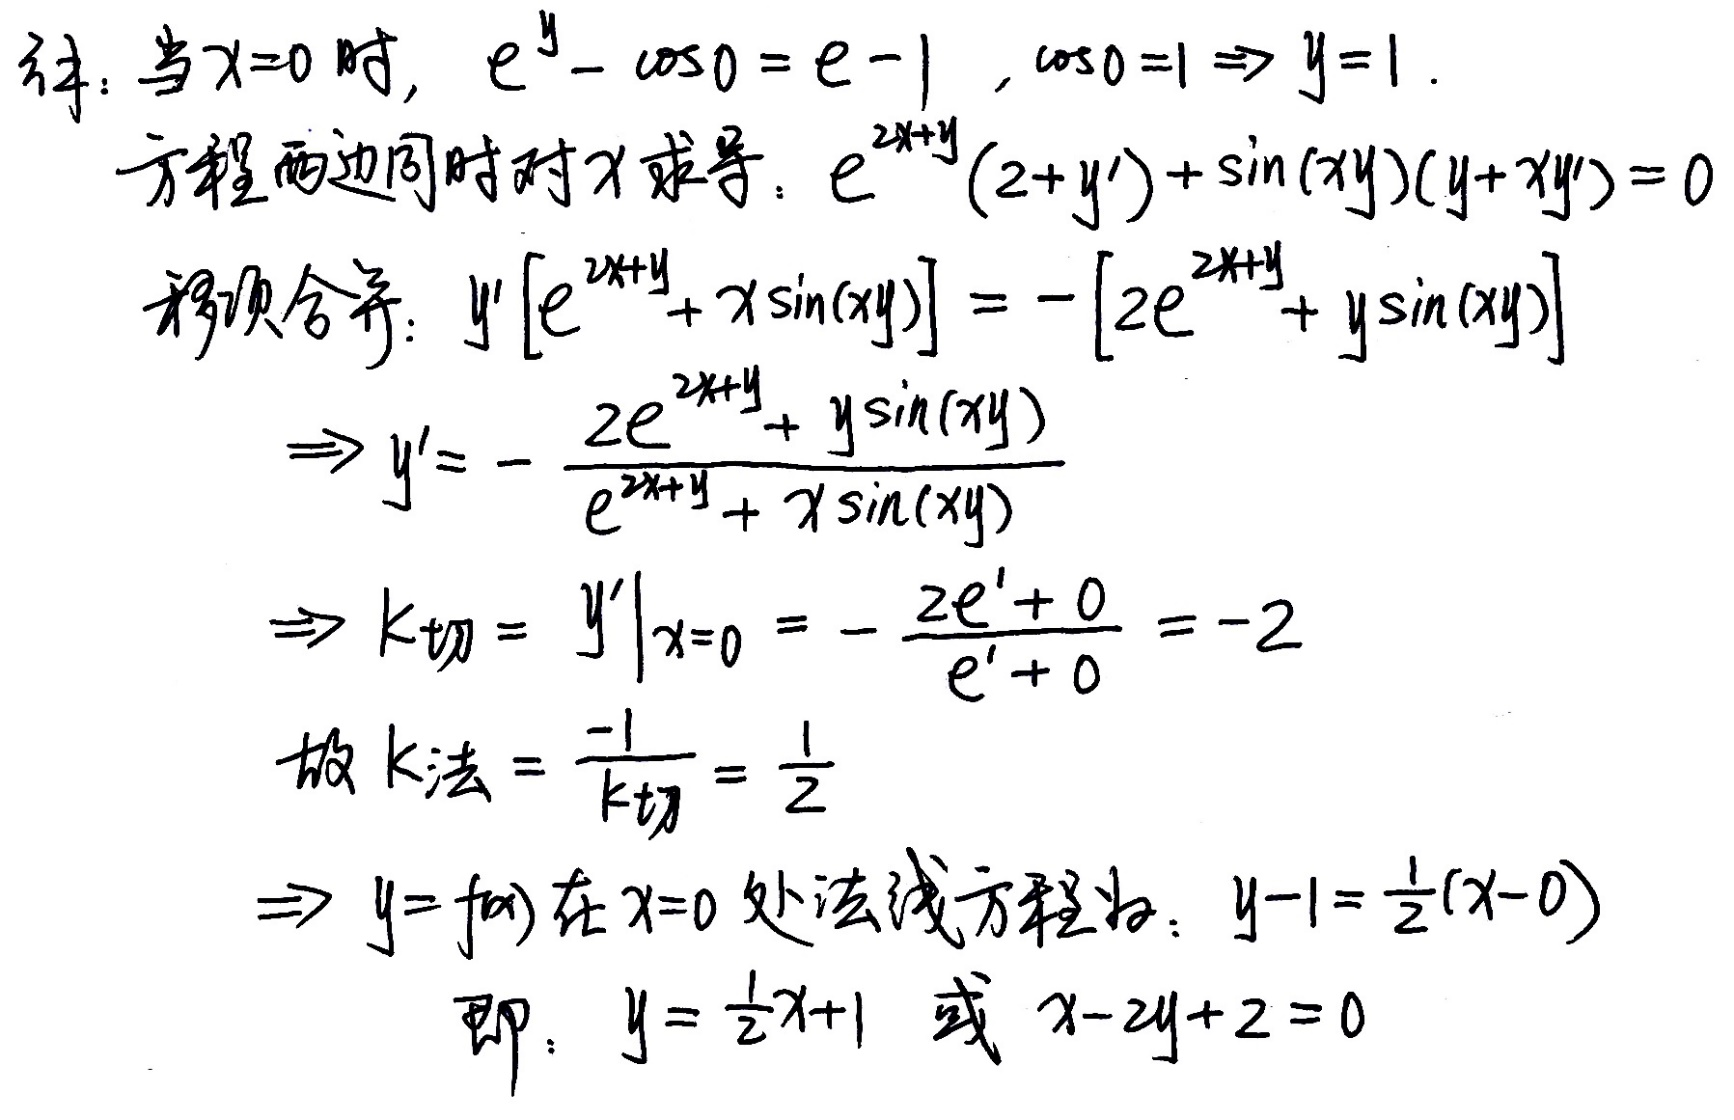 详：当x=0时, e^y - cos0 = e-1 , cos0=1 ⇒ y=1.
方程两边同时对x求导：e^{2x+y}(2+y')+sin(xy)(y+xy')=0
移项合并：y'[e^{2x+y}+xsin(xy)] = -[2e^{2x+y}+ysin(xy)]
⇒ y' = - \frac{2e^{2x+y}+ysin(xy)}{e^{2x+y}+xsin(xy)}
⇒ k切 = y'|x=0 = - \frac{2e^1+0}{e^1+0} = -2
故 k法 = \frac{-1}{k切} = \frac{1}{2}
⇒ y=f(x)在x=0处法线方程为：y-1=\frac{1}{2}(x-0)
即：y=\frac{1}{2}x+1 或 x-2y+2=0